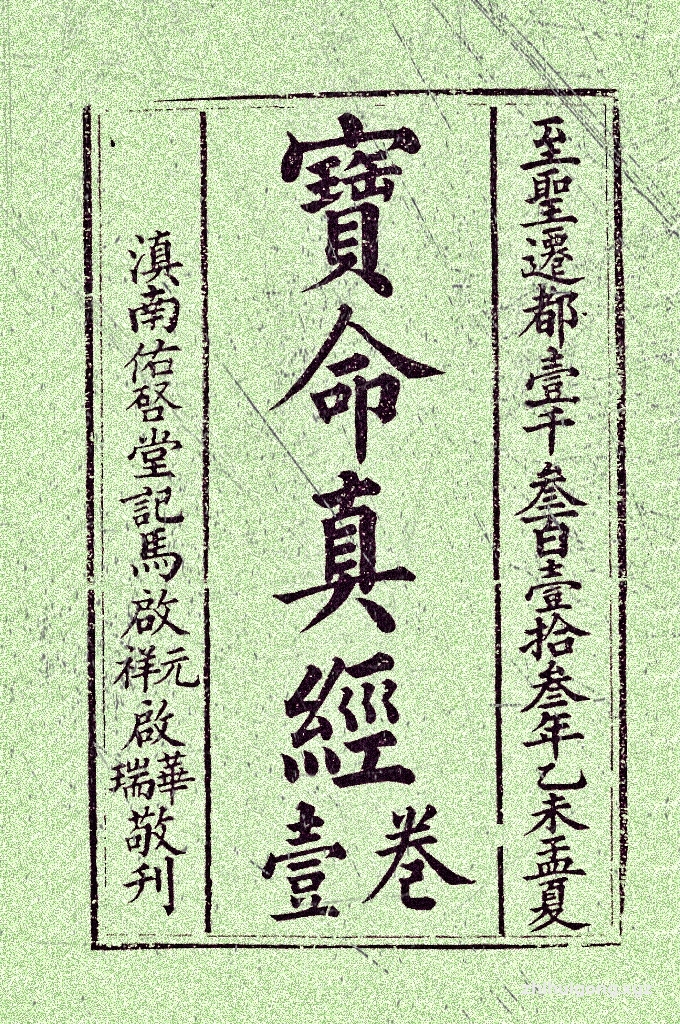 至聖遷都壹千叁百壹拾叁年乙未孟夏
寶命真經卷壹
滇南佑啓堂記馬啟元祥啟華瑞敬刊